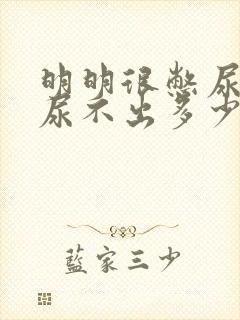 明明很憋尿
尿不出多少
藍家三少